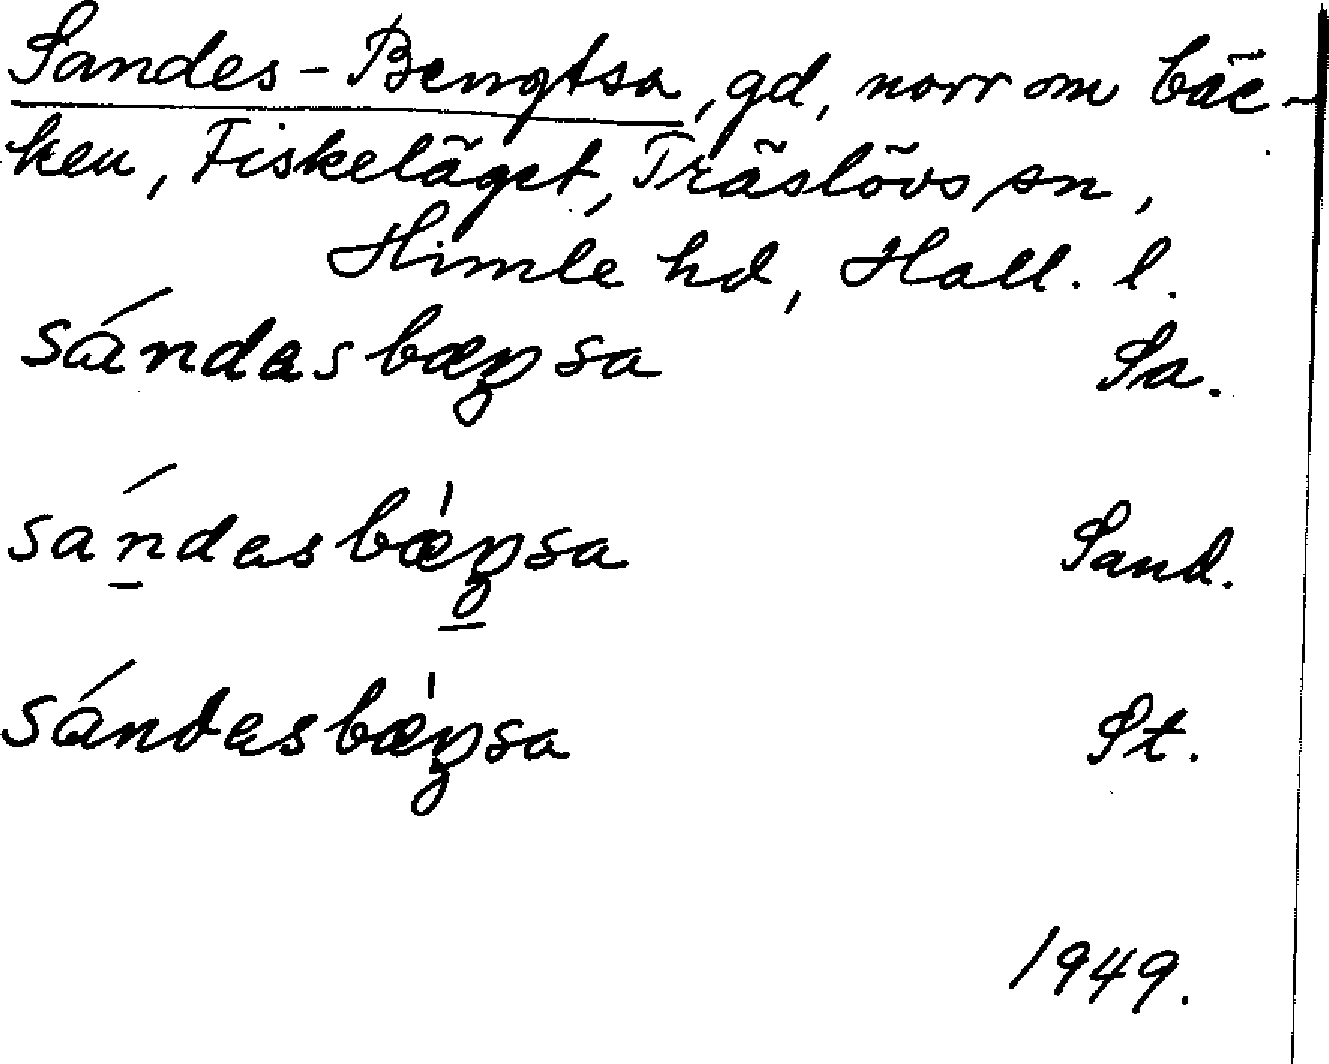 Sandes-Bengtsa, gd, norr om bäc-
ken, Fiskeläget, Träslövs sn,
Himle hd, Hall. l.
sándasbæŋsa Sa.
sańdasbæ̍ŋsa Sand.
sándasbæ̍ŋsa St.
1949.